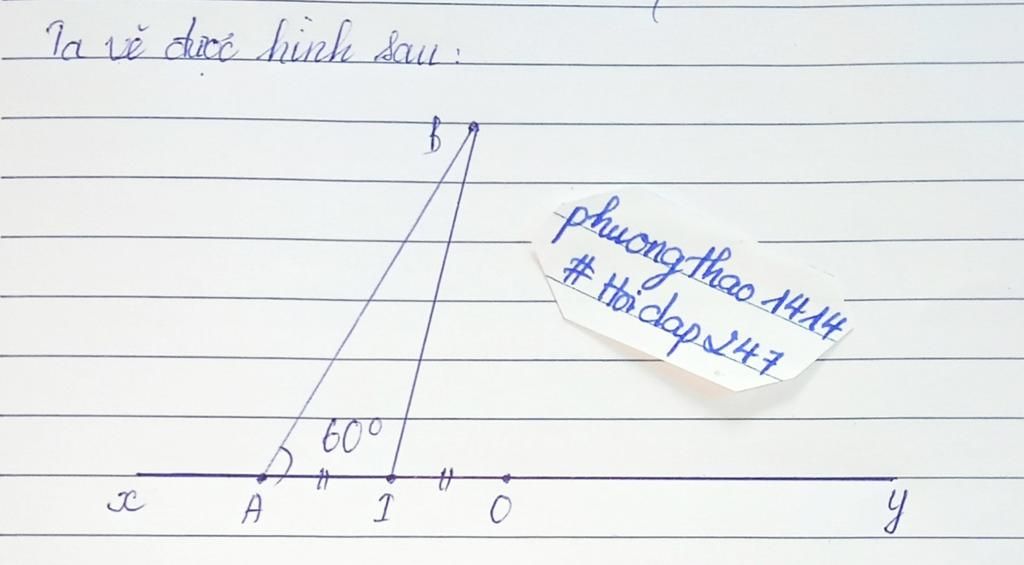 Ta vẽ được hình sau:
B
phuongthao1414
# Hoidap247
60°
x A I O y